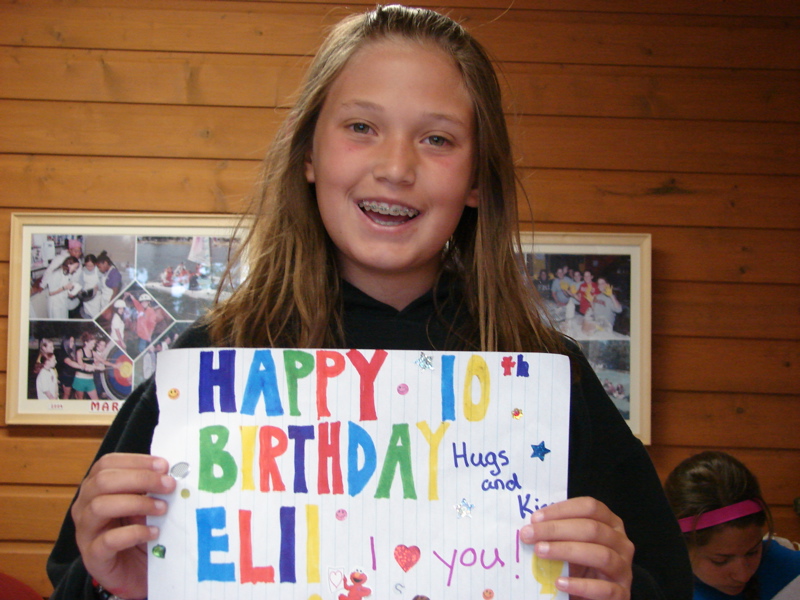 HAPPY 10th
BIRTHDAY
Hugs
and
ELI! I ♥ you!
MAR